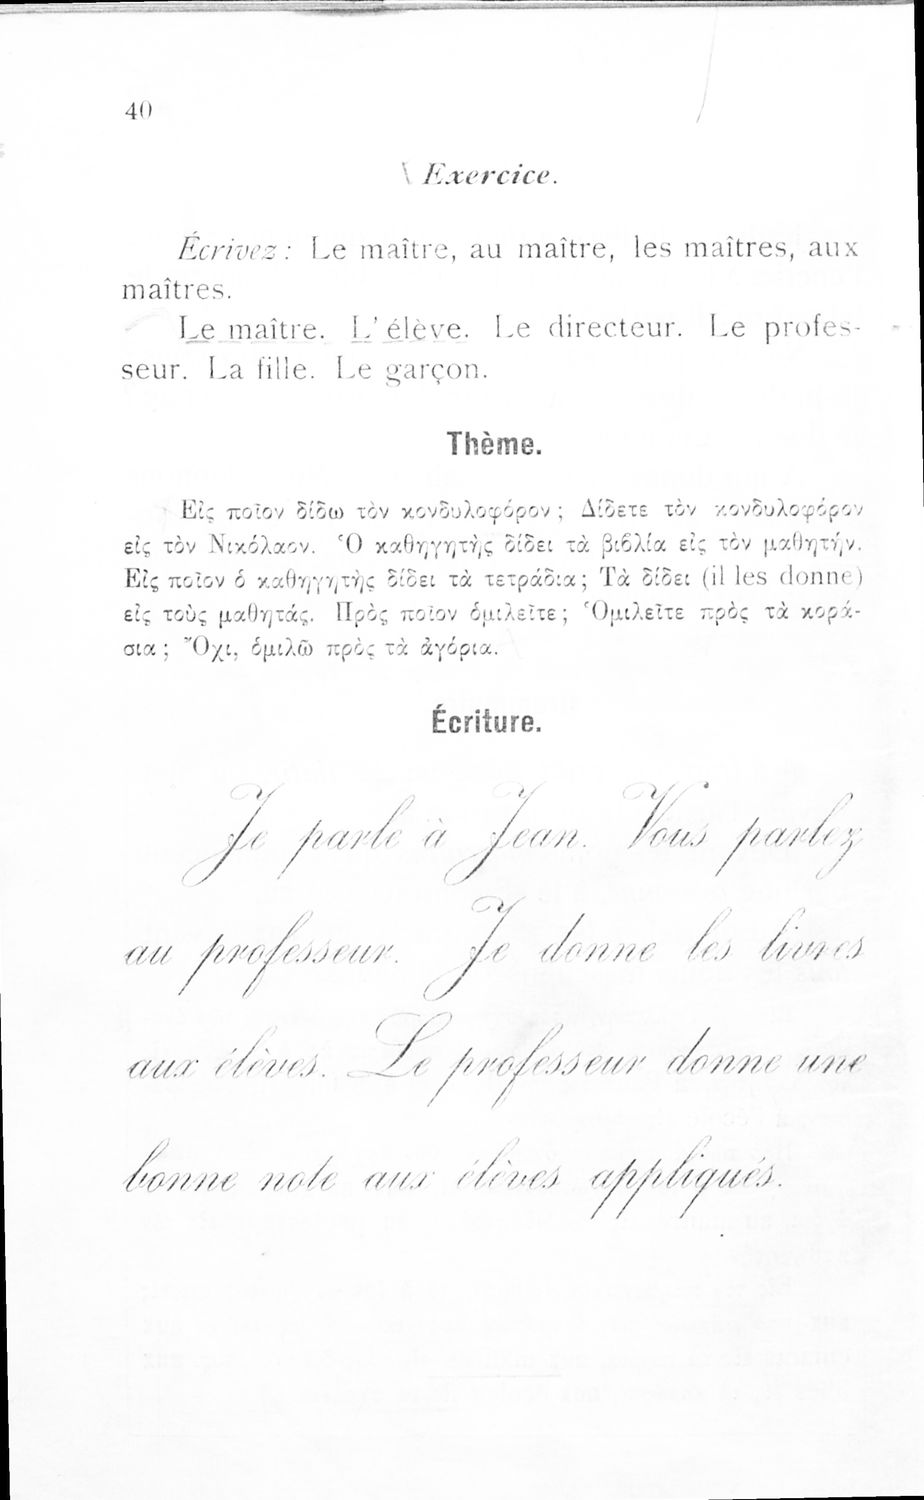 40
Exercice.
Écrivez : Le maître, au maître, les maîtres, aux
maîtres.
Le maître. L' élève. Le directeur. Le profes-
seur. La fille. Le garçon.
Thème.
Εἰς ποῖον δίδω τὸν κονδυλοφόρον ; Δίδετε τὸν κονδυλοφόρον
εἰς τὸν Νικόλαον. Ὁ καθηγητὴς δίδει τὰ βιβλία εἰς τὸν μαθητήν.
Εἰς ποῖον ὁ καθηγητὴς δίδει τὰ τετράδια ; Τὰ δίδει (il les donne)
εἰς τοὺς μαθητάς. Πρὸς ποῖον ὁμιλεῖτε ; Ὁμιλεῖτε πρὸς τὰ κορά-
σια ; Ὄχι, ὁμιλῶ πρὸς τὰ ἀγόρια.
Écriture.
Je parle à Jean. Vous parlez
au professeur. Je donne les livres
aux élèves. Le professeur donne une
bonne note aux élèves appliqués.